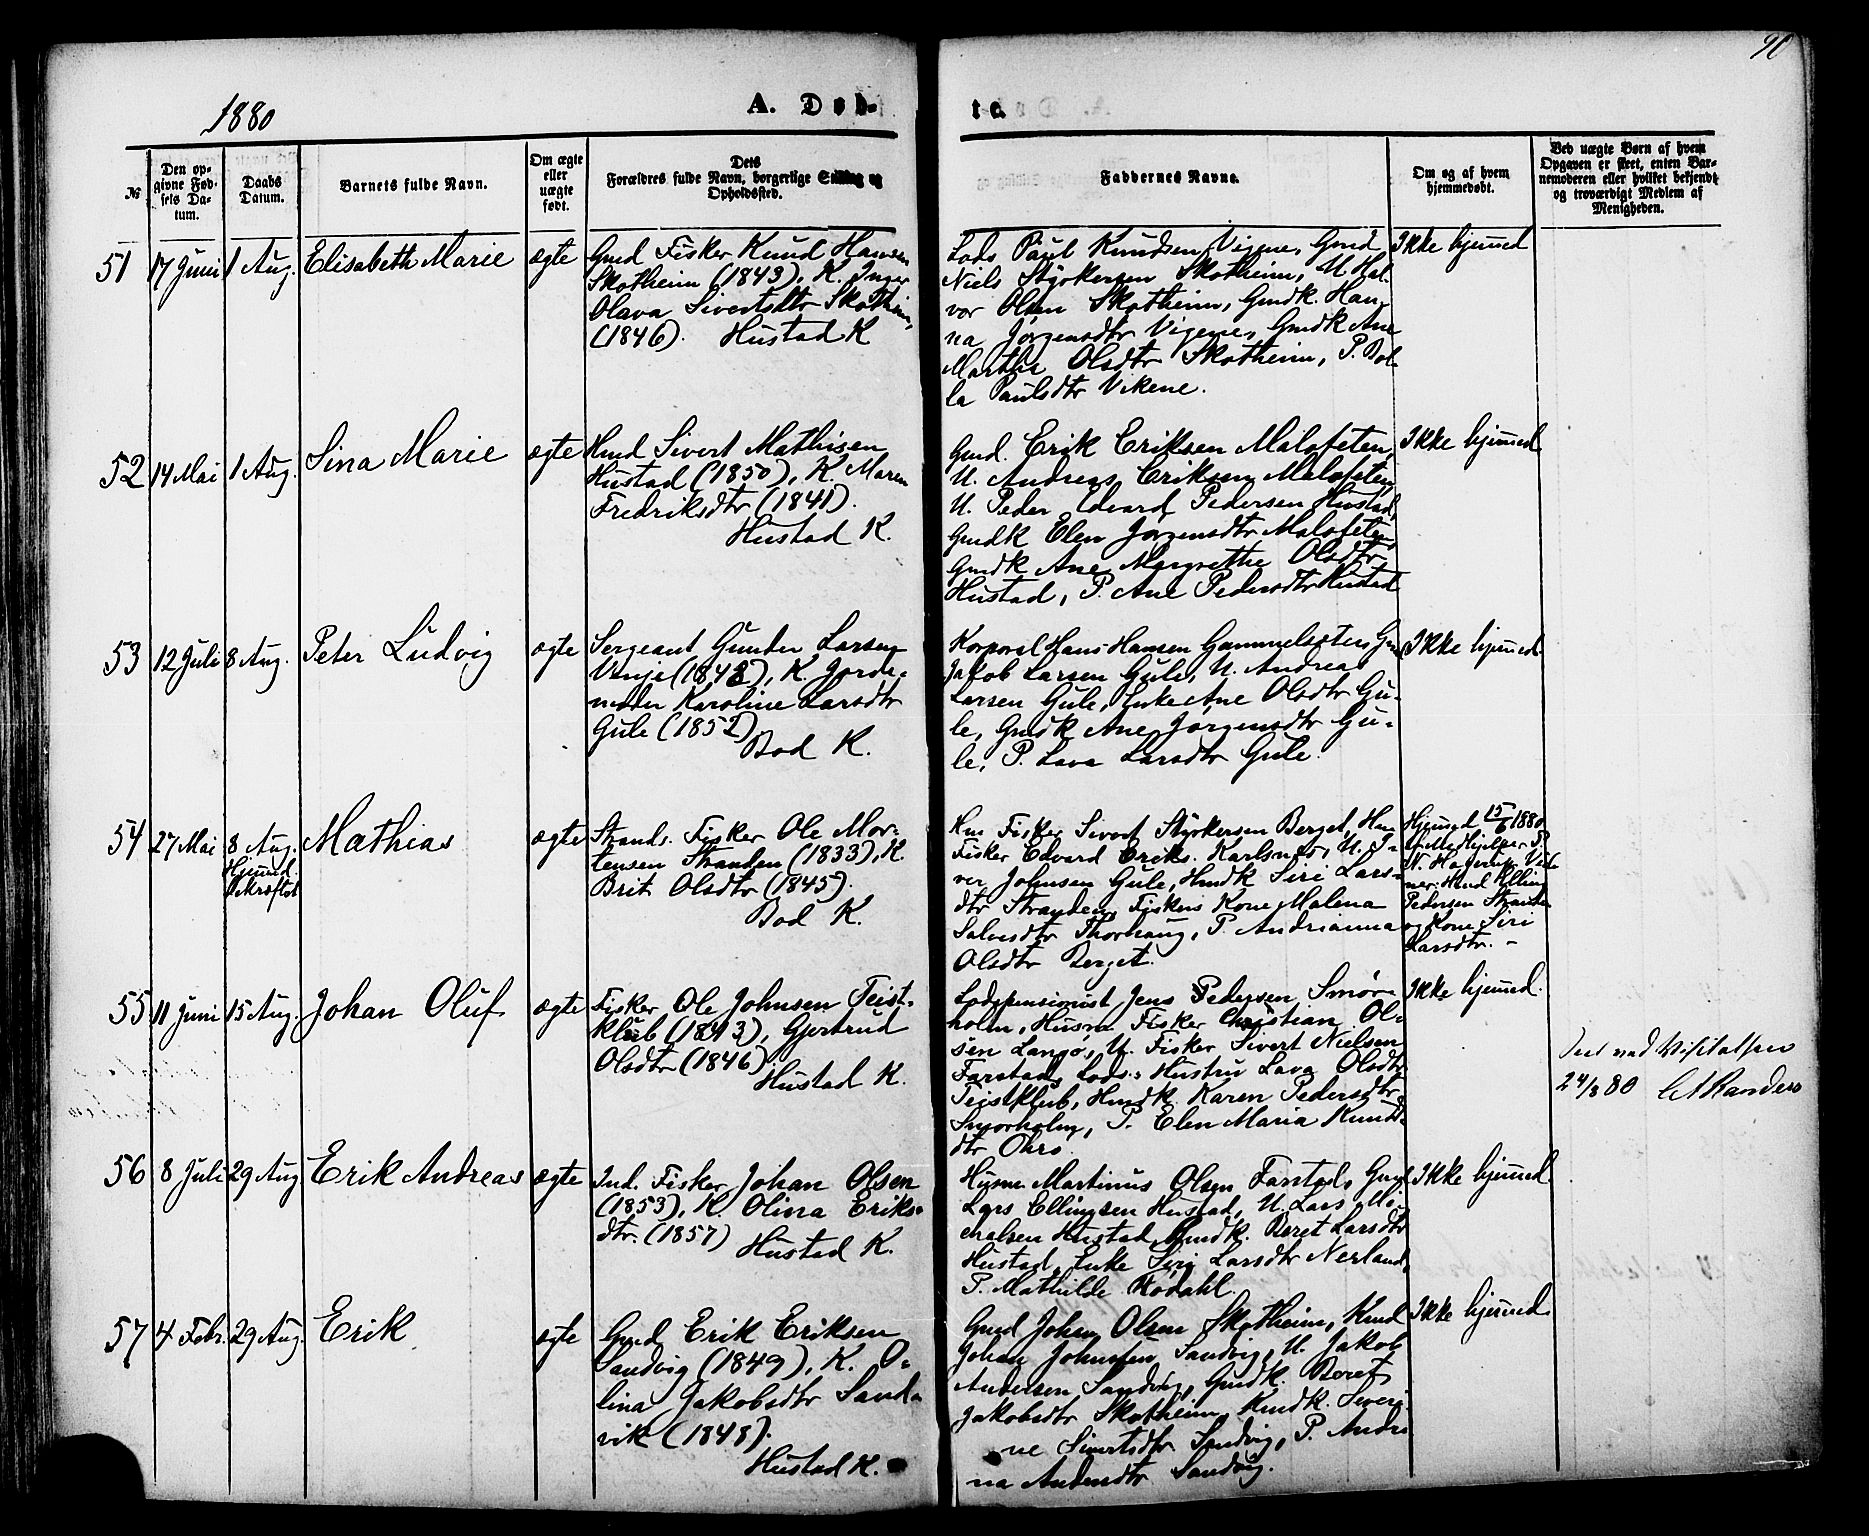 90
1880
A. Døb-
te.
№
Den op-
givne Fød-
sels Da-
tum.
Daabs
Datum.
Barnets fulde Navn.
Om ægte
eller
uægte
født.
Dets
Forældres fulde Navn, borgerlige Stilling og
Opholdssted.
Faddernes Navne.
Om og af hvem
hjemmedøbt.
Ved uægte Børn af hvem
Opgaven er skeet, enten Bar-
nemoderen eller hvilket bekjendt
og troværdigt Medlem af
Menigheden.
51 17 Juni 1 Aug. Elisabeth Marie ægte
Gmd Fisker Knud Hansen
Skotheim (1843), K. Inger
Olava Sivertsdtr Skotheim,
(1846). Hustad K
Lods Paul Knudsen Vigene, Gmd
Niels Styrkersen Skotheim, U. Hal-
vor Olsen Skotheim, Gmdk. Han-
na Jørgensdtr Vigene, Gmdk Ane
Marthe Olsdtr Skotheim, P. Bol-
la Paulsdtr Vikene.
Ikke hjemmed
52 14 Mai 1 Aug. Sina Marie ægte
Hmd Sivert Mathisen
Hustad (1850), K. Maren
Fredriksdtr (1841).
Hustad K.
Gmd. Erik Eriksen Malefeten,
U. Andreas Eriksen Malefeten,
U. Peder Edvard Pedersen Hustad,
Gmdk Elen Jørgensdtr Malefeten,
Gmdk Ane Margrethe Olsdtr
Hustad, P. Ane Pedersdtr Hustad
Ikke hjemmed
53 12 Juli 8 Aug. Peter Ludvig ægte
Sergeant Gunder Larsen
Vinje (1842), K. Jorde-
moder Karoline Larsdtr
Gule (1852)
Bod K.
Korporal Hans Hansen Gammelsæter, Gmd
Jakob Larsen Gule, U. Andreas
Larsen Gule, Enke Ane Olsdtr Gu-
le, Gmdk Ane Jørgensdtr Gu-
le, P. Lava Larsdtr Gule.
Ikke hjemmed
54 27 Mai 8 Aug. Mathias ægte
Hjemmed.
Bekræftet
Strands. Fisker Ole Mor-
tensen Stranden (1833), K.
Brit Olsdtr (1845).
Bod K.
Hm Fisker Sivert Styrkersen Berget, Hm
Fisker Edvard Eriks. Karlsnes, U. I-
ver Johnsen Gule, Hmdk Siri Lars-
dtr Stranden, Fiskers Kone Malena
Salvesdtr Thorhaug, P. Andrianna
Olsdtr Berget.
Hjemmed 15/6 1880
Pedersen Stranden
og Kone Siri
Larsdtr. -
55 11 Juni 15 Aug. Johan Oluf ægte
Fisker Ole Johnsen Teist-
klub (1843), Gjertrud
Olsdtr (1846).
Hustad K.
Lodspensionist Jens Pedersen Smør-
holm, Husm Fisker Christian Ol-
sen Langø, U. Fisker Sivert Nielsen
Farstad, Lods: Hustru Lava Olsdtr
Teistklub, Hmdk. Karen Pedersdtr
Smørholm, P. Elen Maria Knuds-
dtr
Ikke hjemmed.
ved Visitatsen
24/8 80
56 8 Juli 29 Aug Erik Andreas ægte
Ind. Fisker Johan Olsen
(1853), K. Olina Eriks-
dtr. (1857) Hustad K.
Husm Martinus Olsen Farstad, Gmd
Lars Ellingsen Hustad, U. Lars Mi-
chalsen Hustad, Gmdk. Beret Larsdtr
Hustad, Enke Siri Larsdtr Nerland,
P. Mathilde Rødahl.
Ikke hjemmed.
57 4 Febr. 29 Aug. Erik ægte
Gmd Erik Eriksen
Sandvig (1849), K. O-
lina Jakobsdtr Sand-
vik (1848).
Hustad K.
Gmd Johan Olsen Skotheim, Hmd
Johan Johnsen Sandvig, U. Jakob
Andersen Sandvig, Gmdk. Beret
Jakobsdtr Skotheim, Hmdk. Severi-
ne Sivertsdtr Sandvig, P. Andri-
na Andersdtr Sandvig.
Ikke hjemmed.